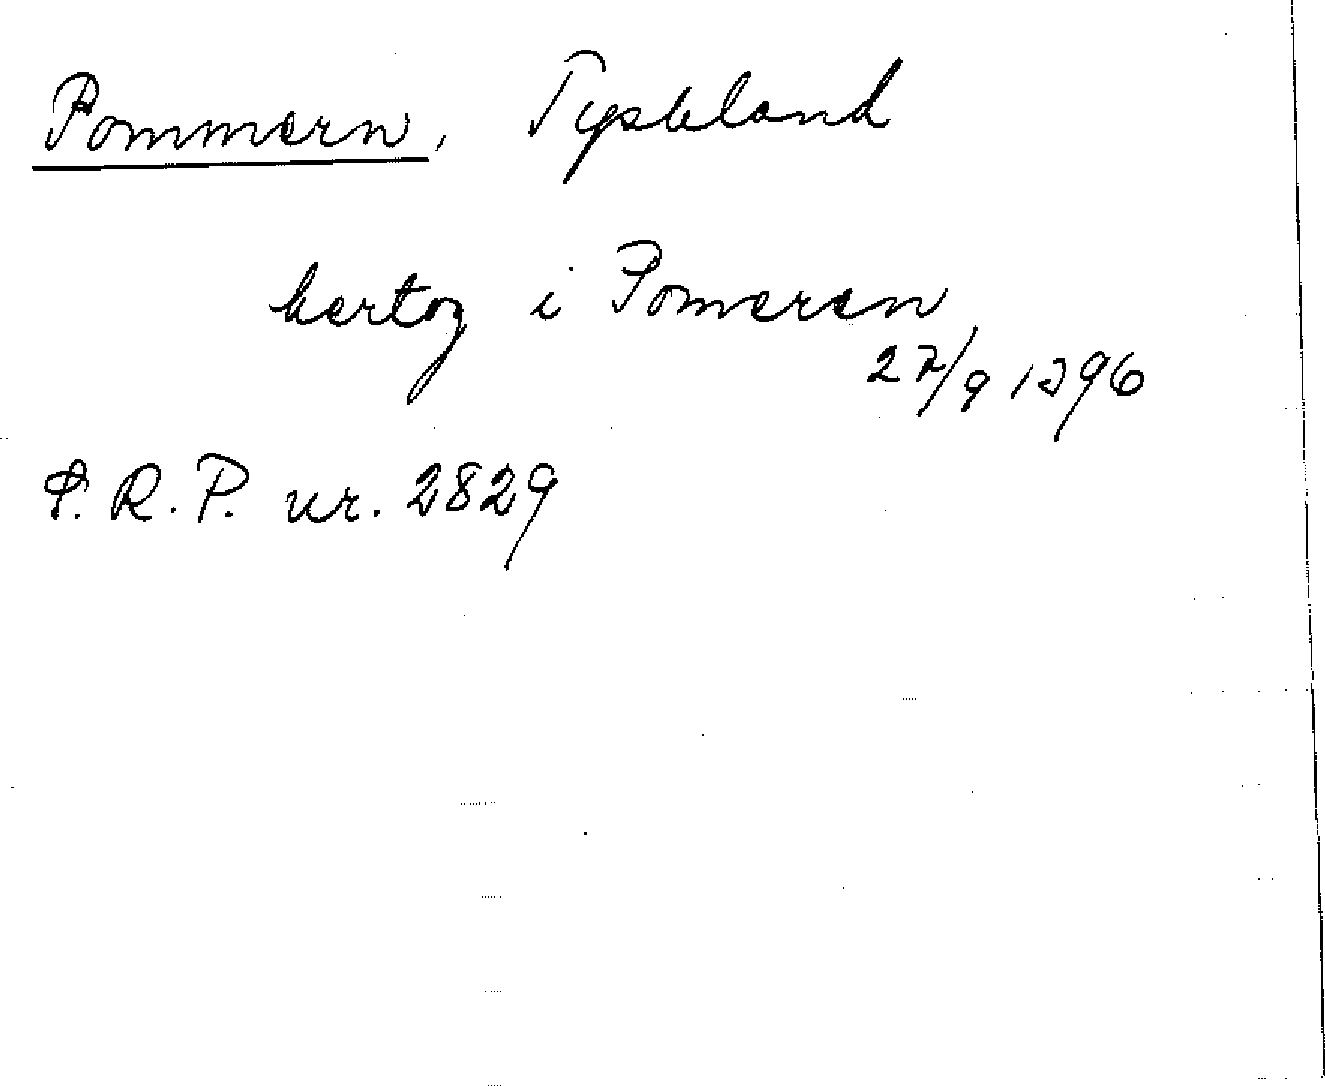 Pommern, Tyskland
hertog i Pomeren
27/9 1396
S.R.P. nr. 2829